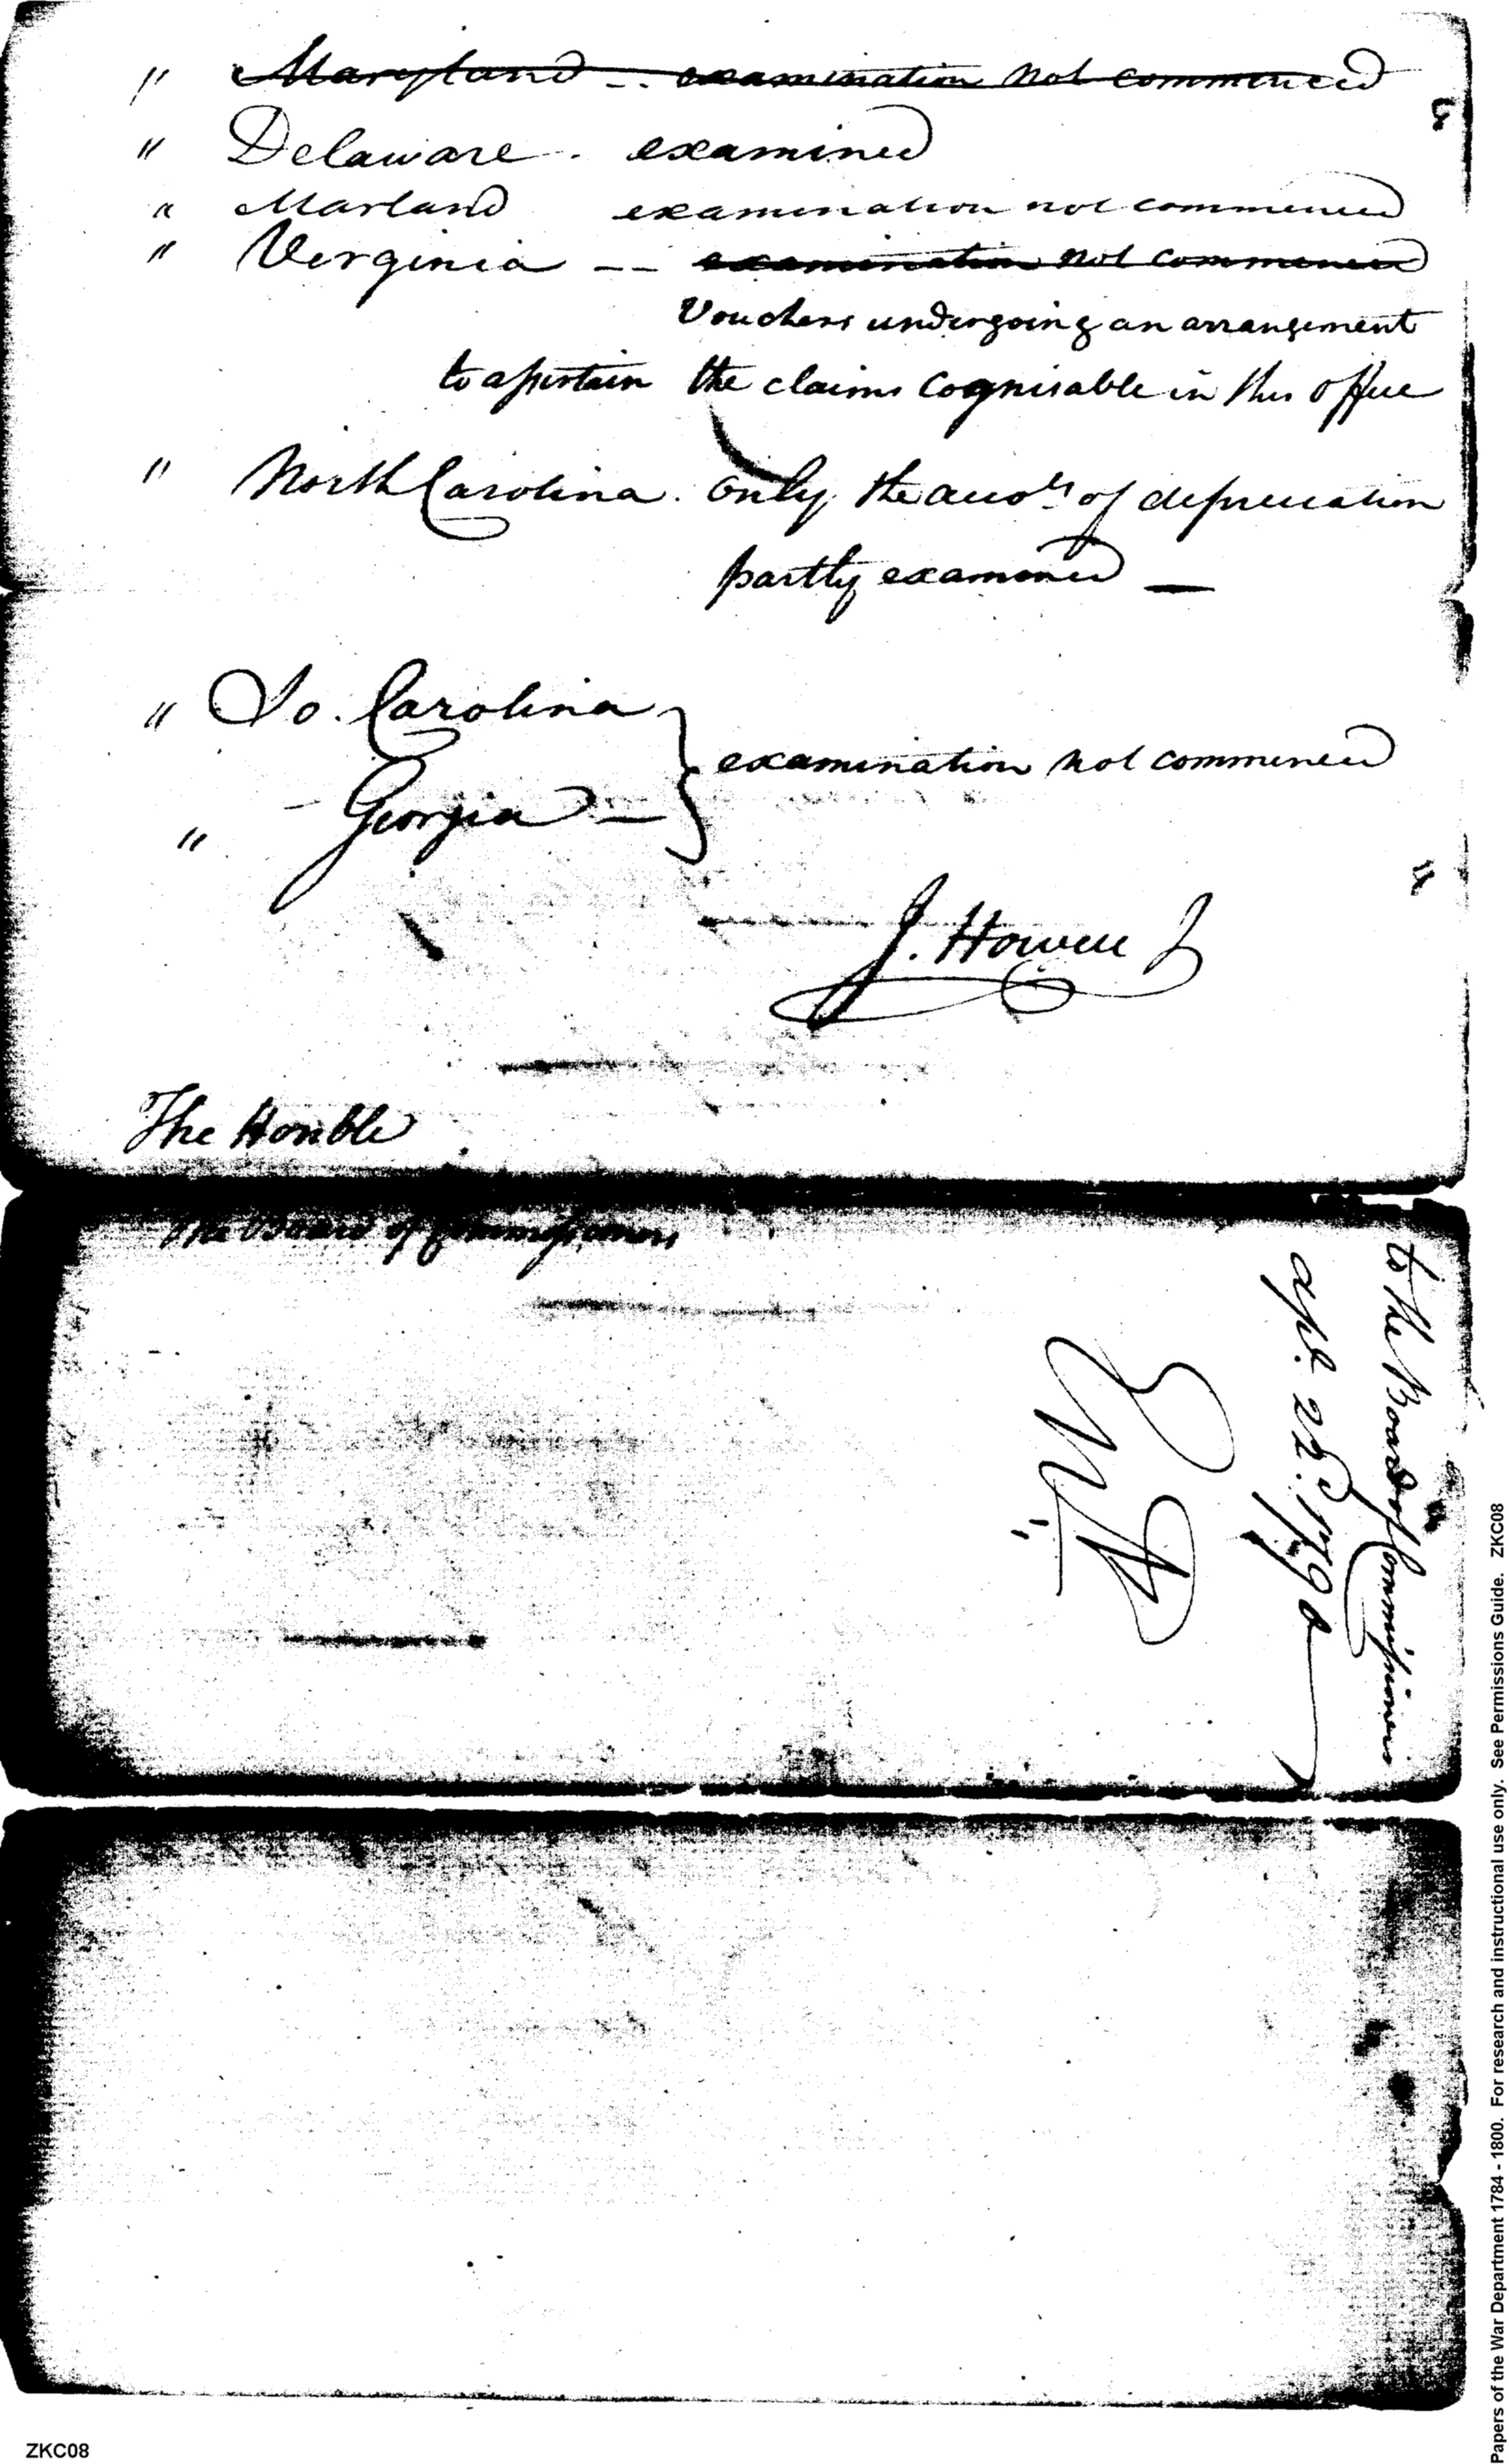 " Maryland -- examination not commenced
" Delaware . examined
" Marland examination not commenced
" Verginia -- examination not commenced
Vouchers undergoing an arrangement
to assertain the claims Cognisable in this office
" North Carolina . Only the accots of depreciation
partly examined —
" So. Carolina
examination not commenced
" - Georgia —
J. Howell J
The Honble
The Board of Commissioners
to the Board of Commissioners
apl. 22d. 1790
ZKC08
Papers of the War Department 1784 - 1800. For research and instructional use only. See Permissions Guide. ZKC08